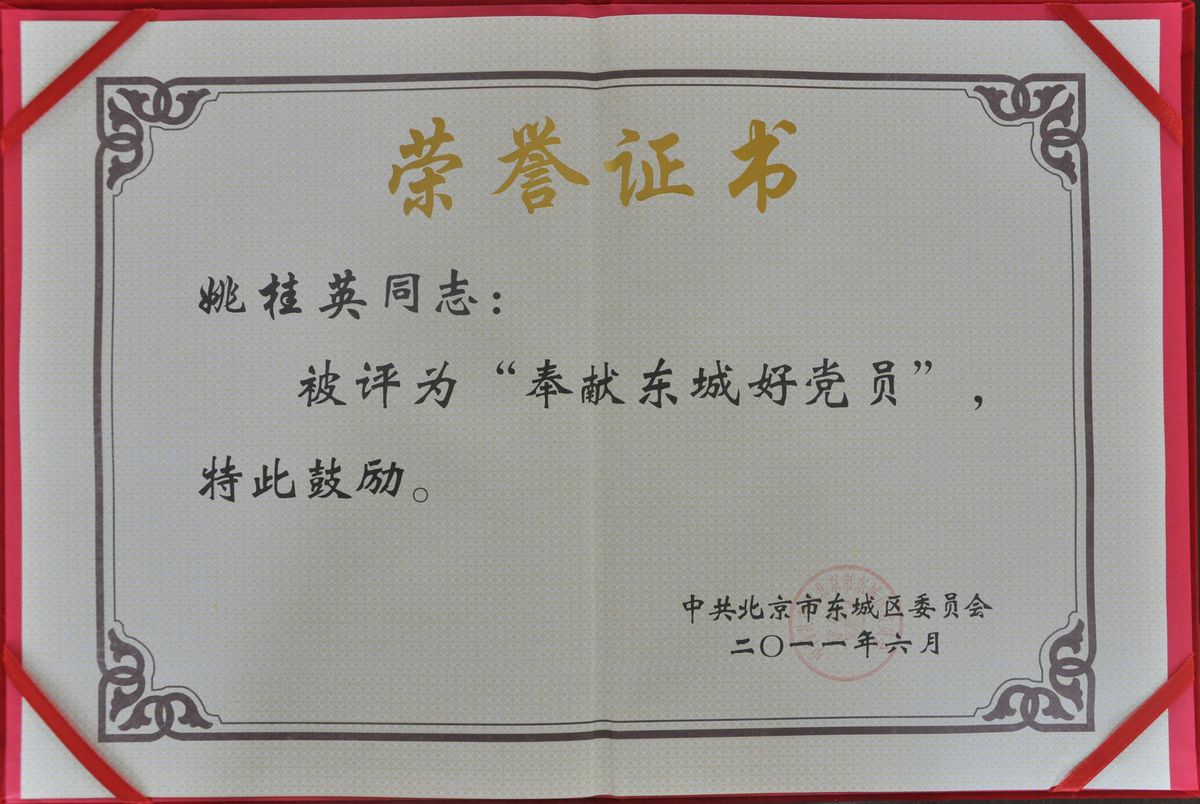 荣誉证书
姚桂英同志：
被评为“奉献东城好党员”，
特此鼓励。
中共北京市东城区委员会
二〇一一年六月